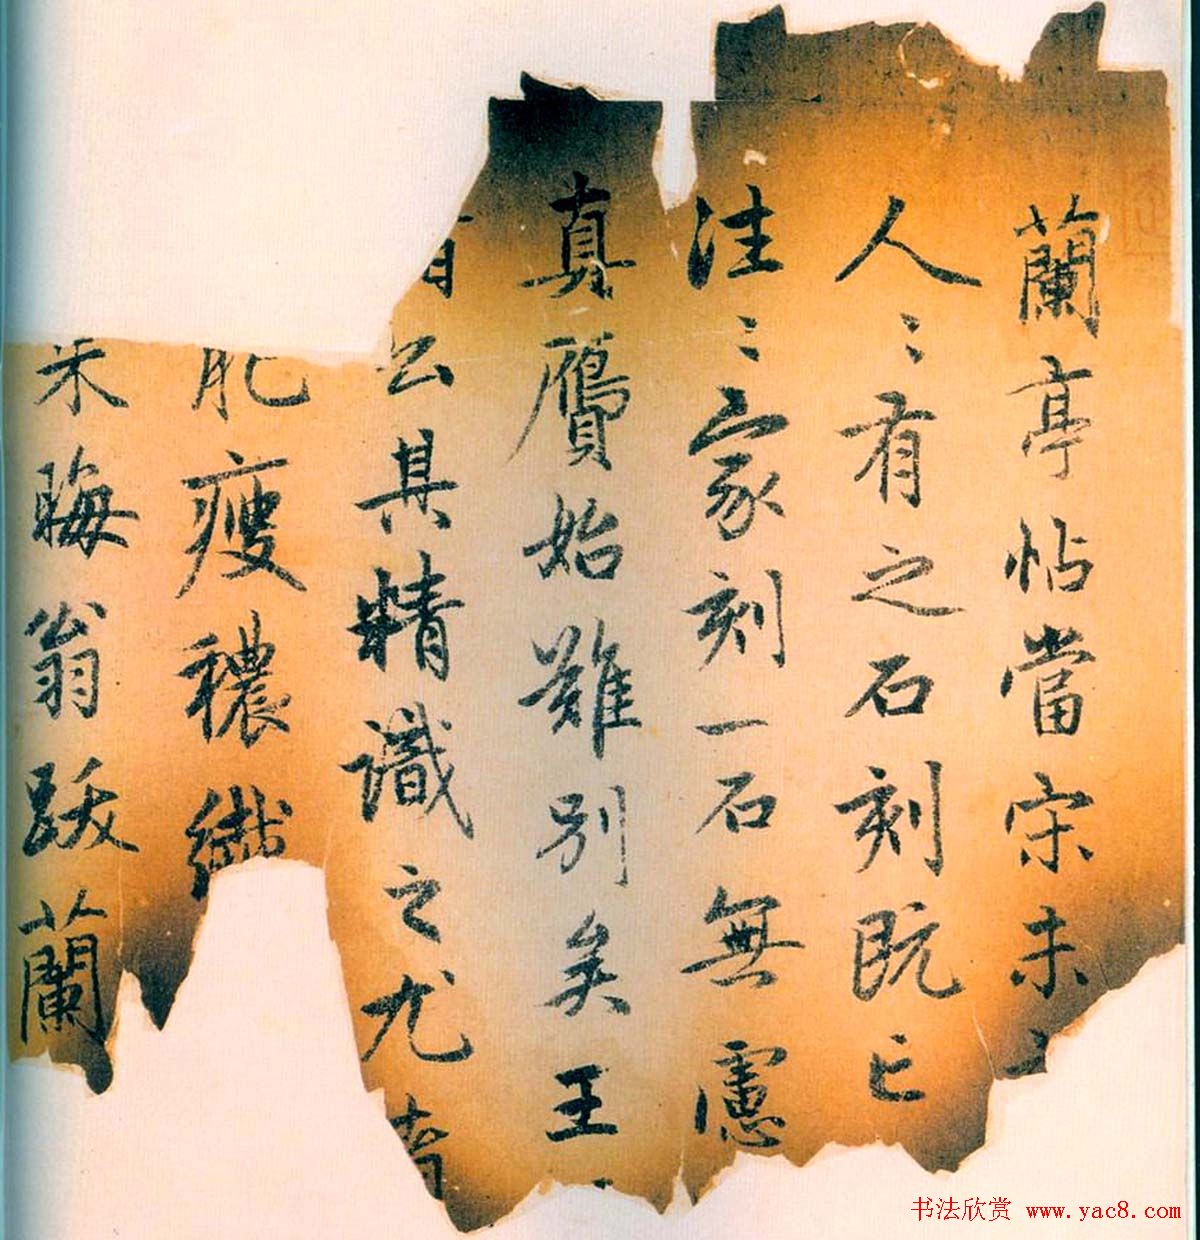 蘭亭帖當宋未
人〻有之石刻既亡
注〻家刻一石無慮
真贋始難別矣王
公其精識之尤者
肥瘦穠纖
朱晦翁跋蘭
书法欣赏 www.yac8.com